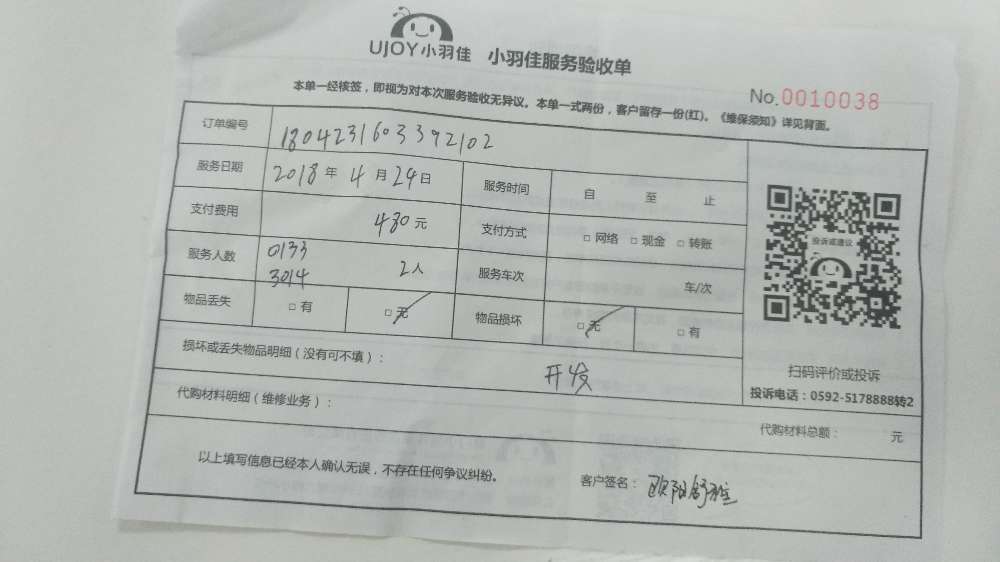 UJOY小羽佳 小羽佳服务验收单
No.0010038
本单一经核签，即视为对本次服务验收无异议。本单一式两份，客户留存一份(红)。《维保须知》详见背面。
订单编号 1804231603392102
服务日期 2018年4月24日 服务时间 自 至 止
支付费用 480元 支付方式 □网络 □现金 □转账
服务人数 0133 3014 2人 服务车次 车/次
物品丢失 □有 □无 物品损坏 □无 □有
损坏或丢失物品明细（没有可不填）：
开发
代购材料明细（维修业务）： 代购材料总额： 元
以上填写信息已经本人确认无误，不存在任何争议纠纷。 客户签名： 欧阳舒雅
投诉或建议
扫码评价或投诉
投诉电话：0592-5178888转2